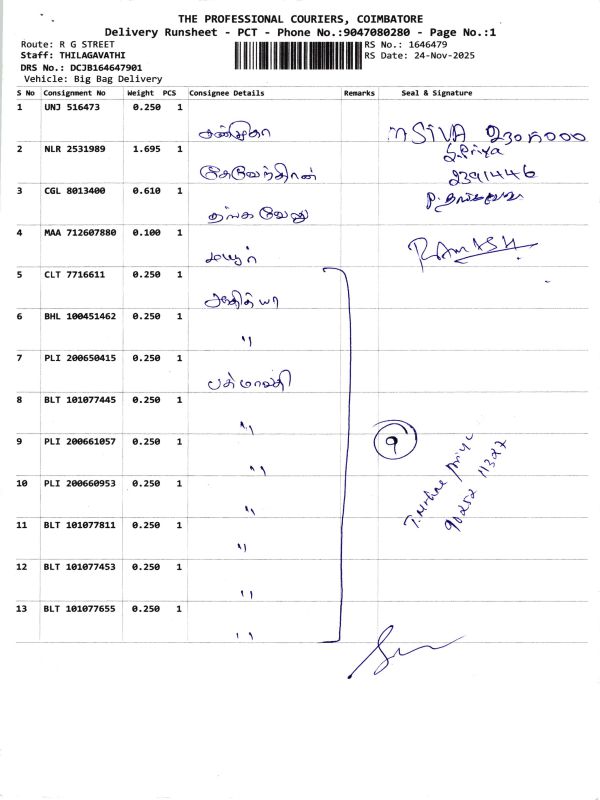 THE PROFESSIONAL COURIERS, COIMBATORE
Delivery Runsheet - PCT - Phone No.:9047080280 - Page No.:1
Route: R G STREET
RS No.: 1646479
Staff: THILAGAVATHI
RS Date: 24-Nov-2025
DRS No.: DCJB164647901
Vehicle: Big Bag Delivery
S No Consignment No Weight PCS Consignee Details Remarks Seal & Signature
1 UNJ 516473 0.250 1
M SIVA
2 NLR 2531989 1.695 1
S. Priya
2391446
3 CGL 8013400 0.610 1
தங்கவேலு
4 MAA 712607880 0.100 1
RAMESH
5 CLT 7716611 0.250 1
ஆதித்யா
6 BHL 100451462 0.250 1
"
7 PLI 200650415 0.250 1
பத்மாவதி
8 BLT 101077445 0.250 1
"
9 PLI 200661057 0.250 1
"
9
10 PLI 200660953 0.250 1
"
11 BLT 101077811 0.250 1
"
12 BLT 101077453 0.250 1
"
13 BLT 101077655 0.250 1
"